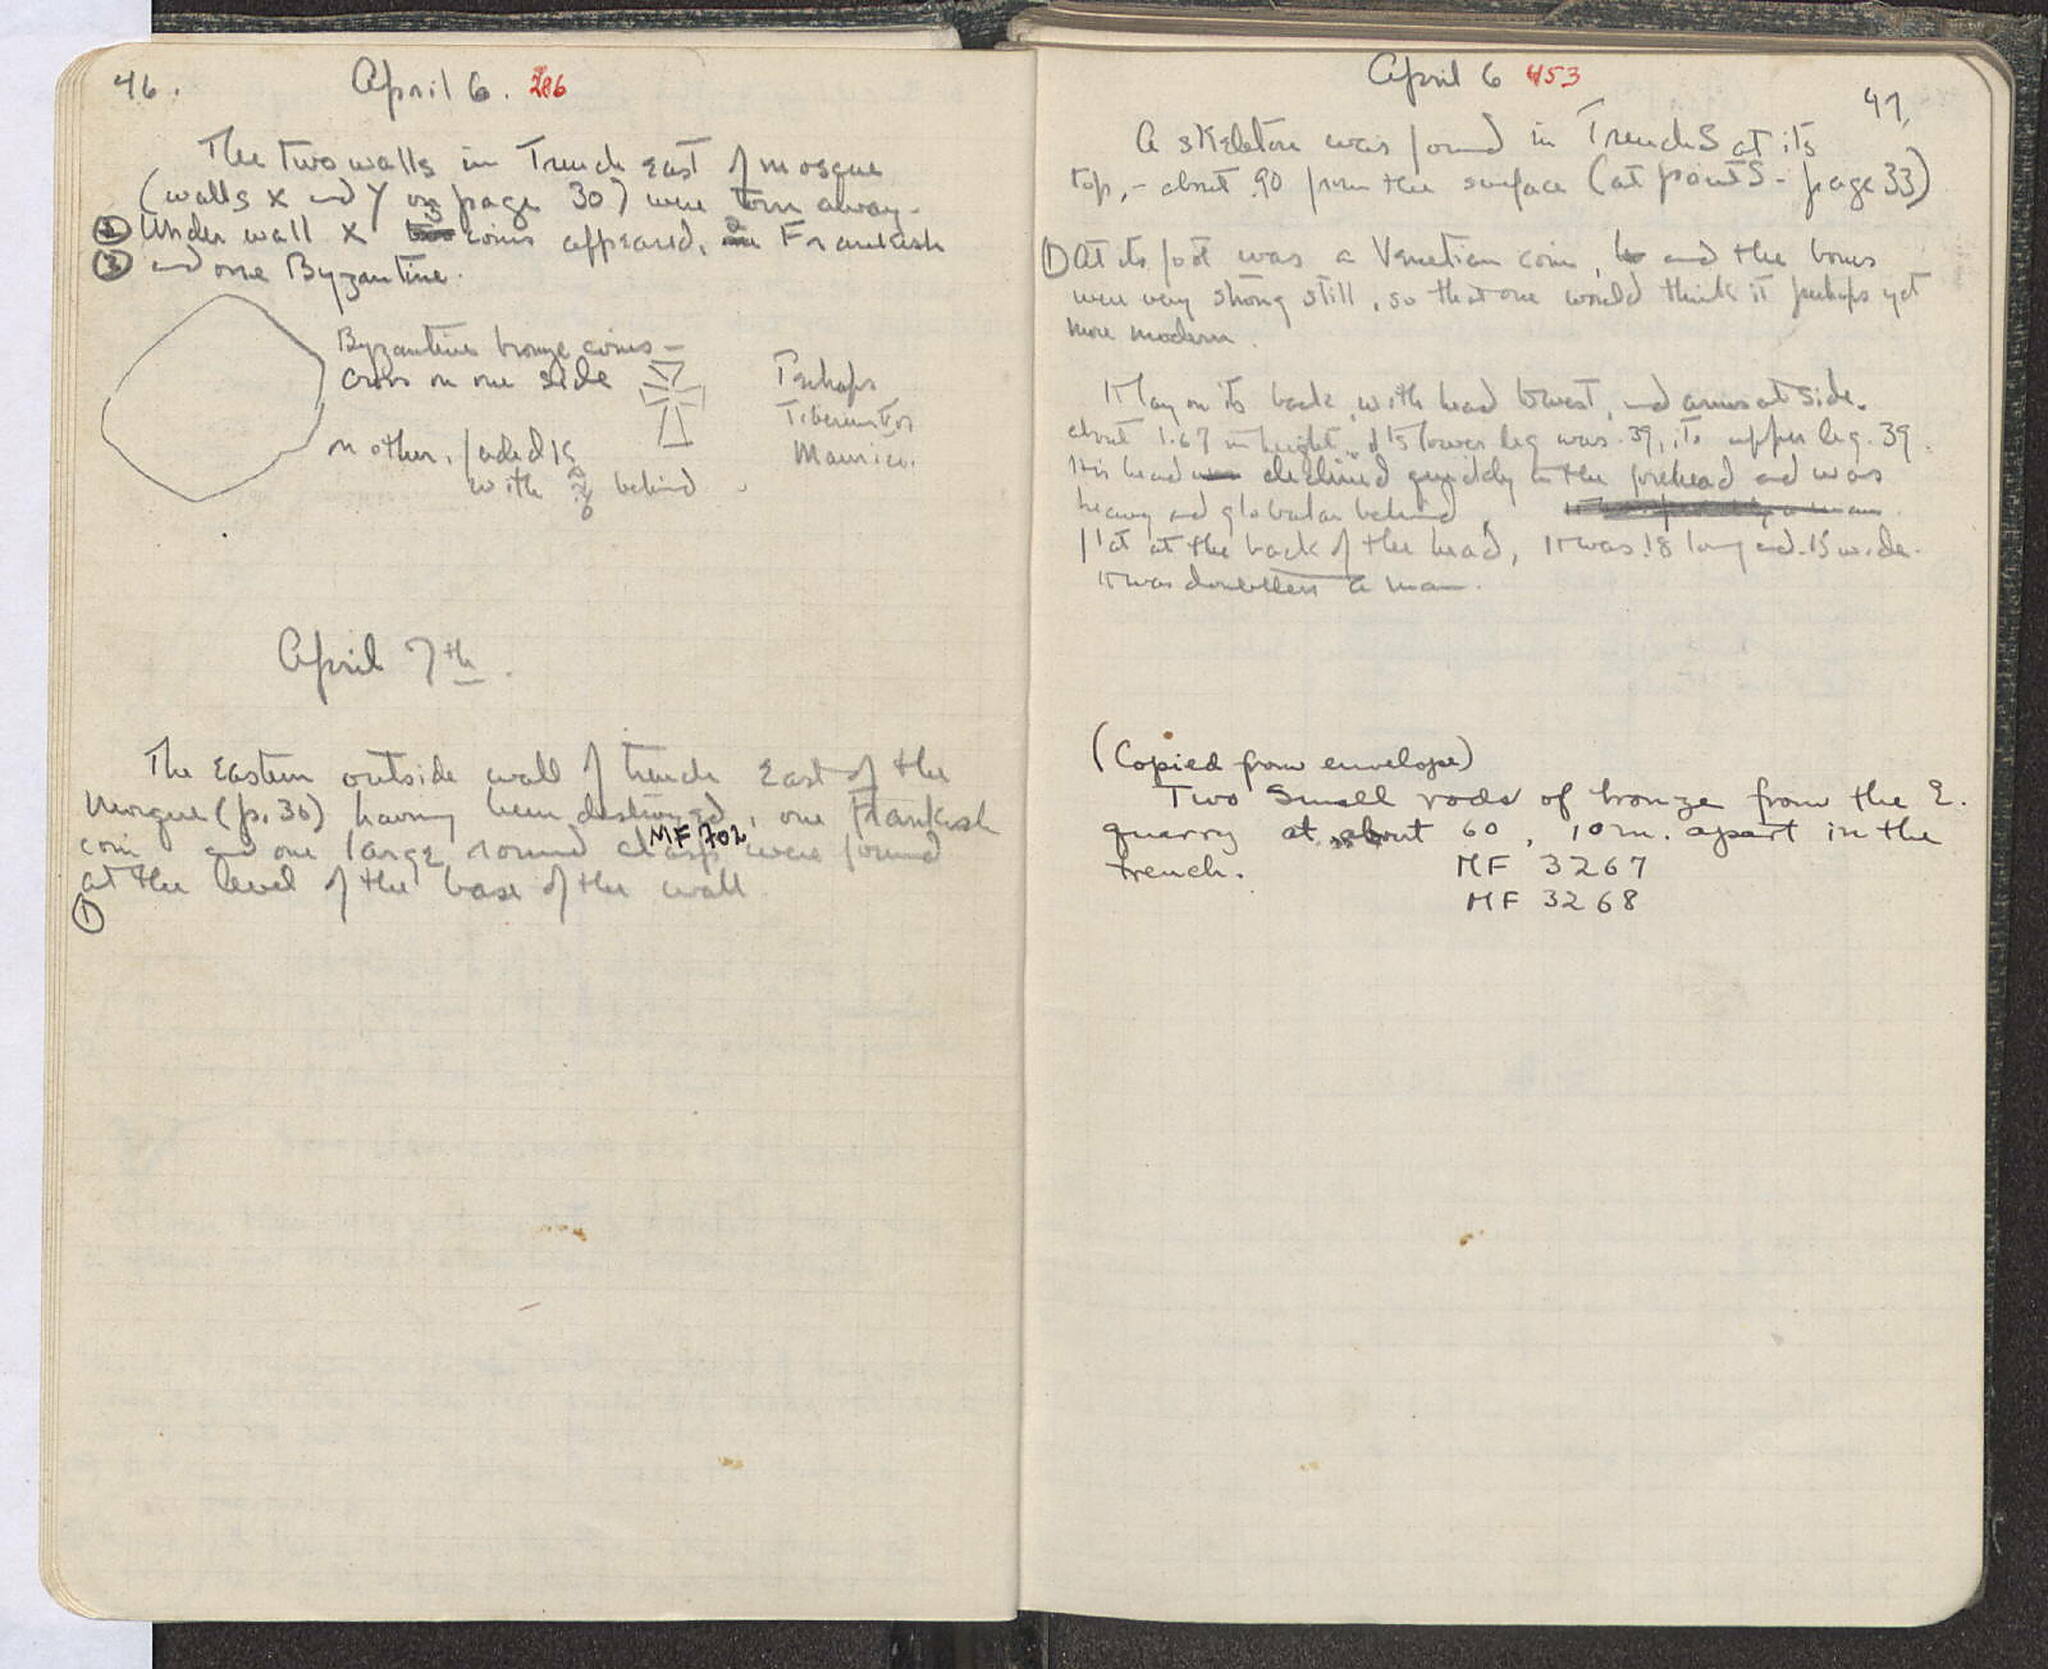 46.
April 6. 286
The two walls in Trench East of mosque
(walls X and Y on page 30) were torn away.
② Under wall X two 3 coins appeared, 2 Frankish
② and one Byzantine.
Byzantine bronze coins –
cross on one side
on other, faded K
with behind.
Perhaps
Tiberius V or
Maurice.
April 7th.
The Eastern outside wall of trench East of the
Mosque (p. 30) having been destroyed, one Frankish
coin and one large round clasp MF 702 were found
at the level of the base of the wall.
①
April 6 453
47.
A skeleton was found in Trench S at its
top, – about .90 from the surface (at point S – page 33)
① At its foot was a Venetian coin, and the bones
were very strong still, so that one would think it perhaps yet
more modern.
It lay on its back, with head to west, and arms at side.
about 1.67 in height, its lower leg was .39, its upper leg .39.
His head was declined quickly in the forehead and was
heavy and globular behind,
flat at the back of the head, it was .18 long and .15 wide.
It was doubtless a man.
(Copied from envelope)
Two small rods of bronze from the E.
quarry at about 60, 10 m. apart in the
trench. MF 3267
MF 3268